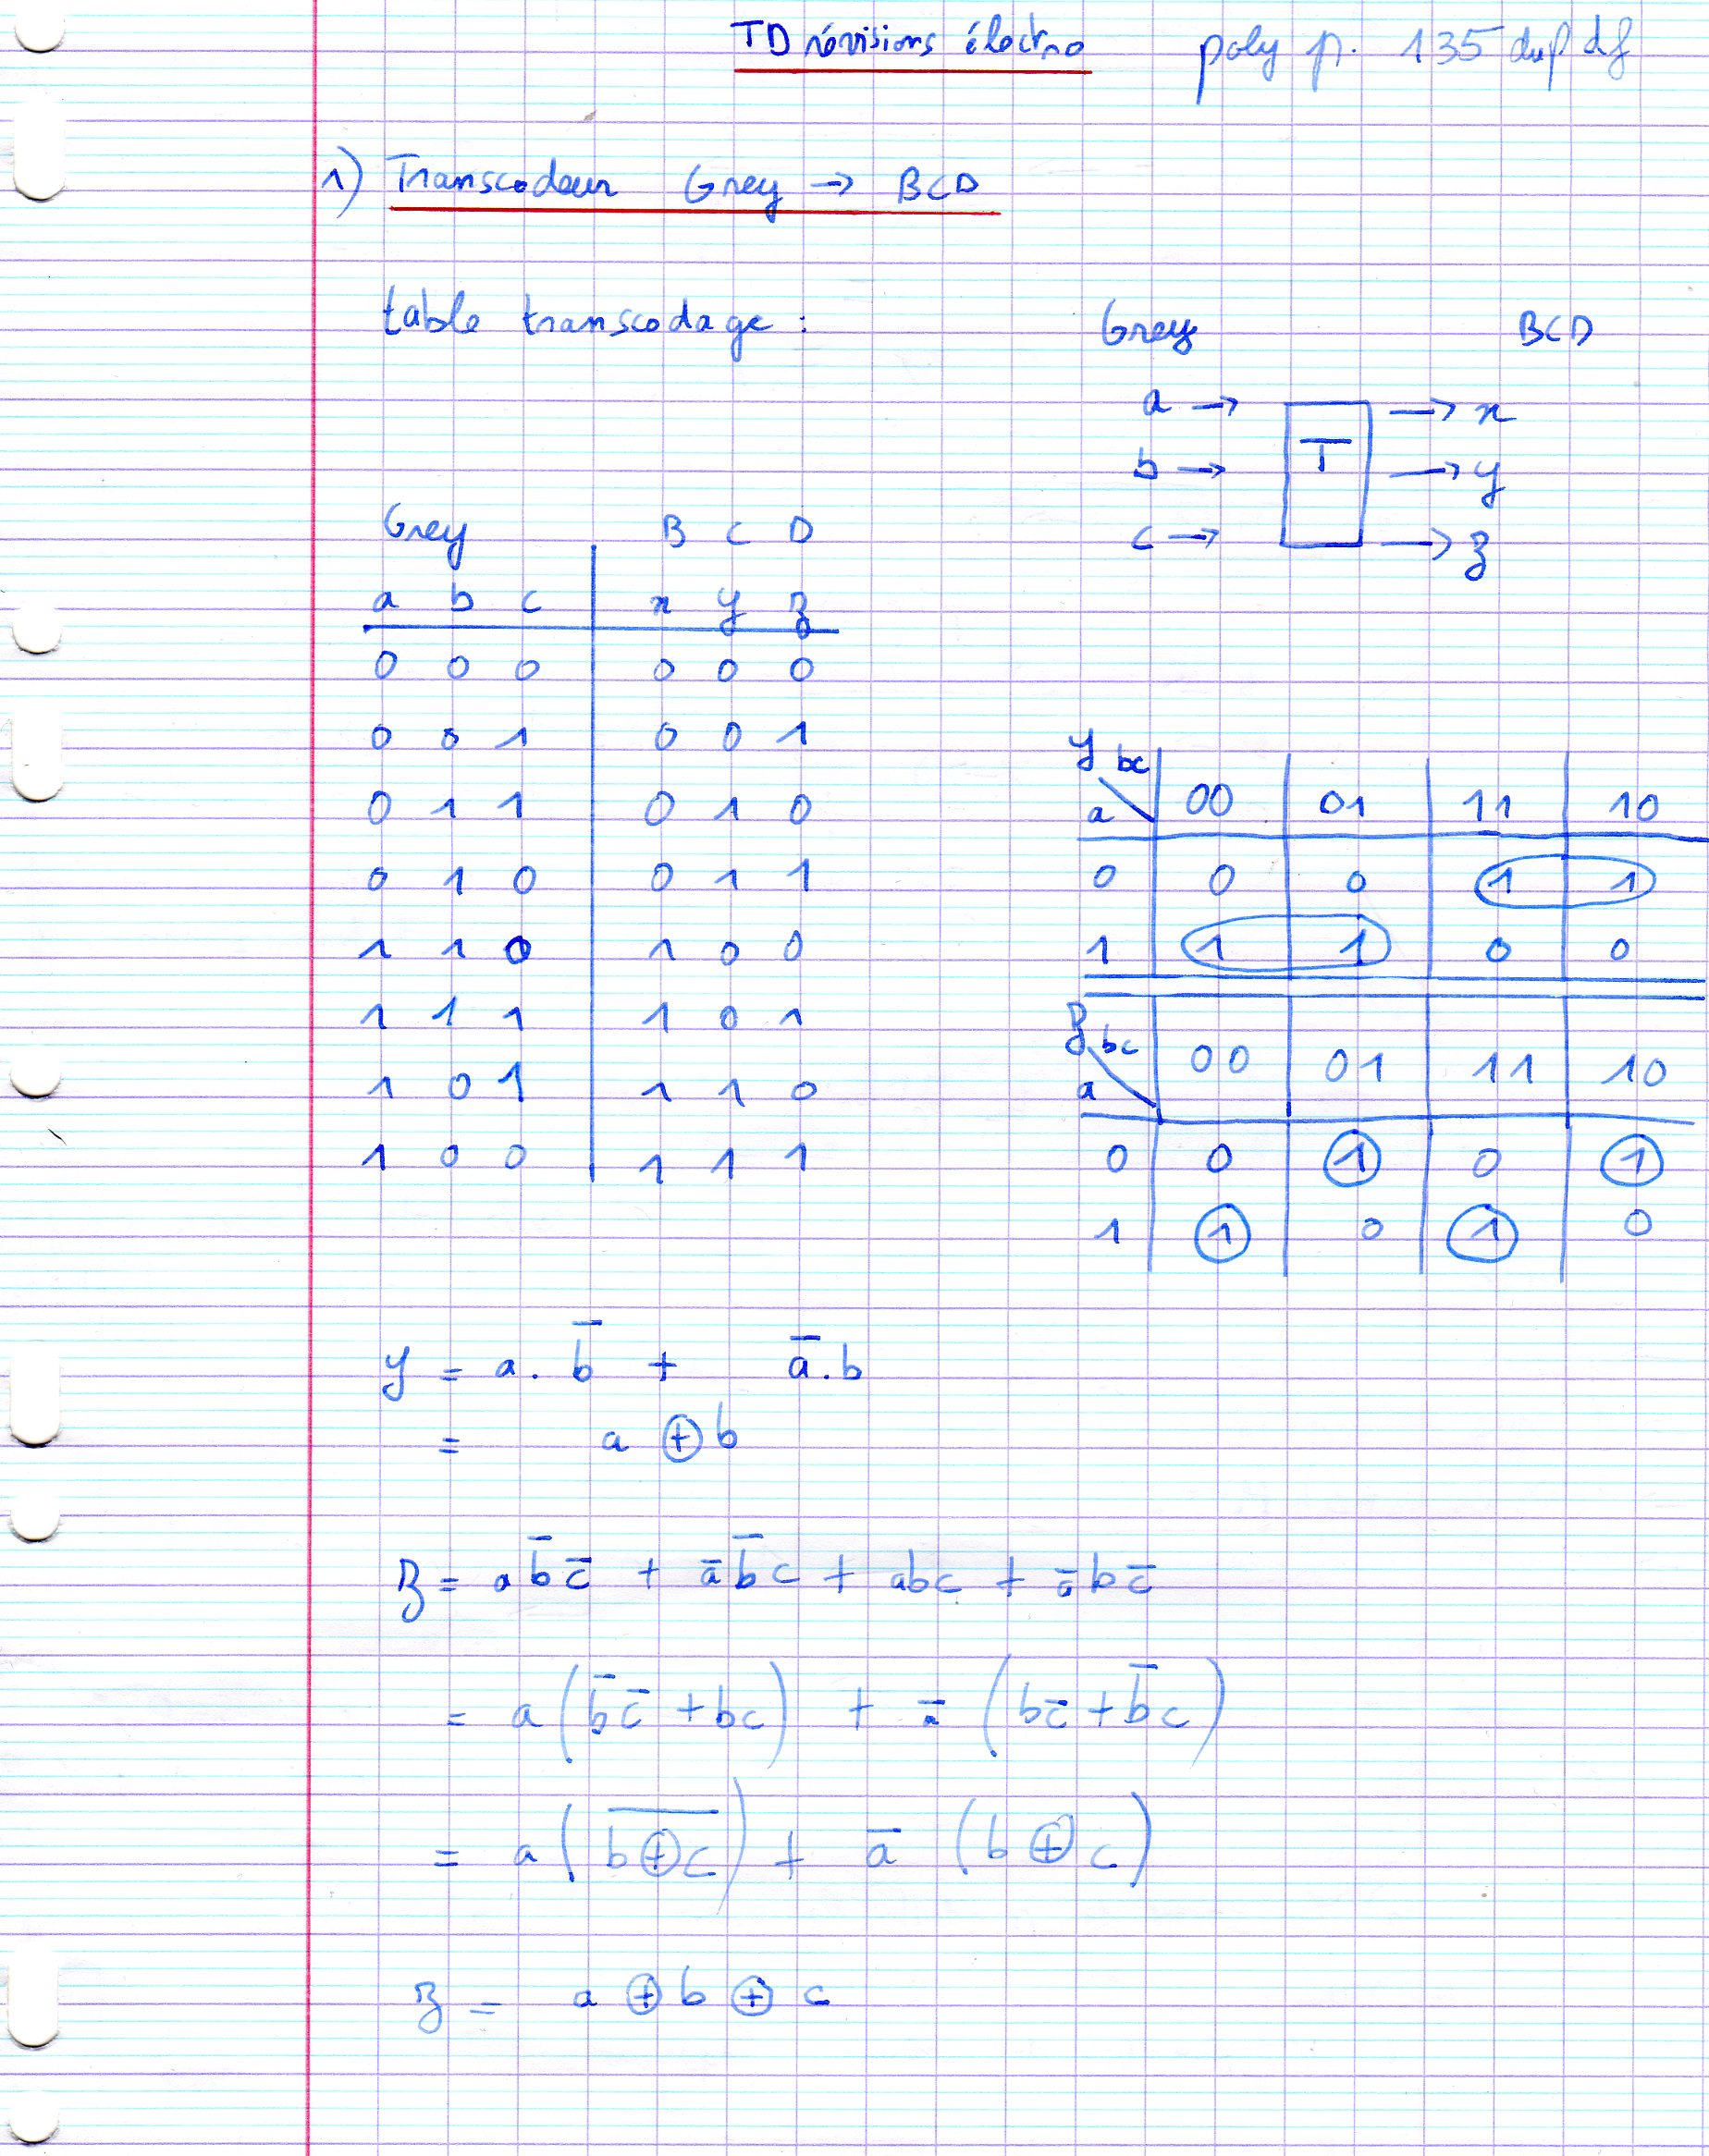 TD révisions électro poly p. 135 du pdf
1) Transcodeur Grey → BCD
table transcodage :
Grey BCD
a → T → x
b → → y
c → → z
Grey B C D
a b c x y z
0 0 0 0 0 0
0 0 1 0 0 1
0 1 1 0 1 0
0 1 0 0 1 1
1 1 0 1 0 0
1 1 1 1 0 1
1 0 1 1 1 0
1 0 0 1 1 1
y bc
a 00 01 11 10
0 0 0 1 1
1 1 1 0 0
z bc
a 00 01 11 10
0 0 1 0 1
1 1 0 1 0
y = a . b̅ + a̅ . b
= a ⊕ b
z = a b̅ c̅ + a̅ b̅ c + abc + a̅ b c̅
= a (b̅ c̅ + bc) + a̅ (b c̅ + b̅ c)
= a (b̅ ⊕̅ c̅) + a̅ (b ⊕ c)
z = a ⊕ b ⊕ c